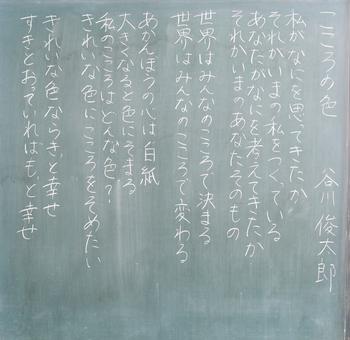 こころの色 谷川俊太郎
私がなにを思ってきたか
それがいまの私をつくっている
あなたがなにを考えてきたか
それがいまのあなたそのもの
世界はみんなのこころで決まる
世界はみんなのこころで変わる
あかんぼうの心は白紙
大きくなると色にそまる
私のこころはどんな色?
きれいな色にこころをそめたい
きれいな色ならきっと幸せ
すきとおっていればもっと幸せ